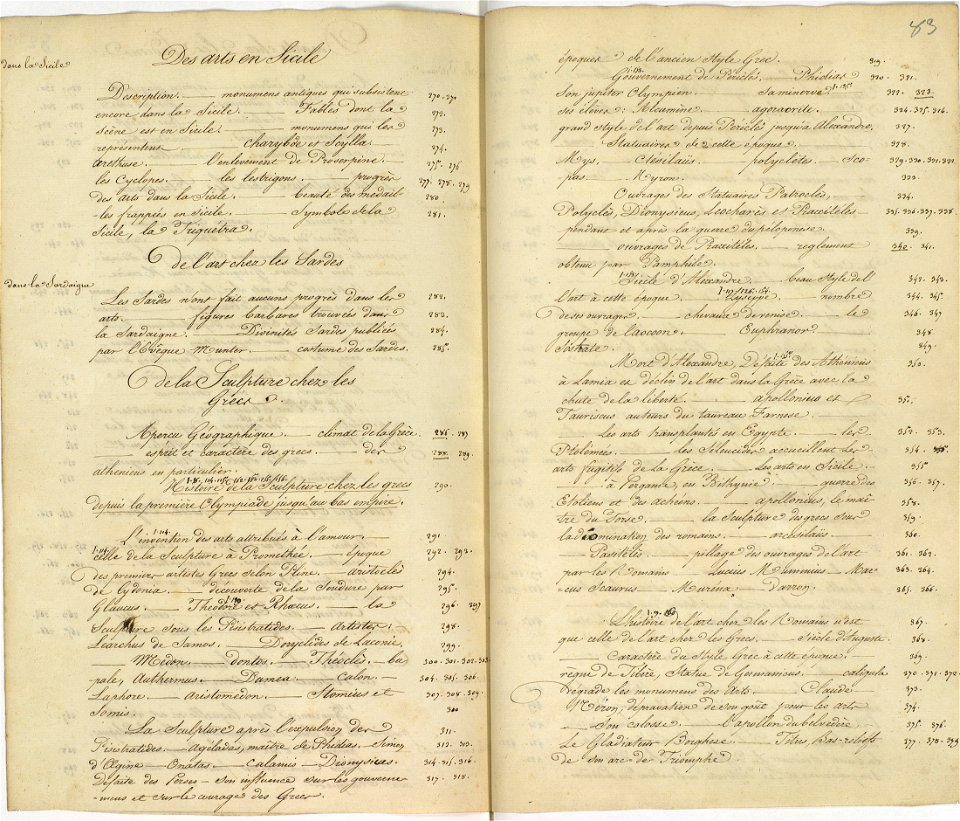 Des arts en Sicile
dans la Sicile
Description. — monumens antiques qui subsistent 270. 271
encore dans la Sicile. — Fables dont la 272.
scène est en Sicile. — monumens qui les 273.
représentens — Charybde et Scylla — 274.
Arethuse. — l'enlevement de Proserpine. — 275. 276
les Cyclopes. — les lestrigons. — progrès 277. 278. 279
des arts dans la Sicile. — beauté des medail- 280.
-les frappées en Sicile. — Symbole de la 281.
Sicile, la Triquetra.
de l'art chez les Sardes
dans la Sardaigne
Les Sardes n'ont fait aucuns progrès dans les 282.
arts. — figures barbares trouvées dans 283.
la Sardaigne. — Divinités Sardes publiées 284.
par l'Evêque Munter. — costume des Sardes. 285.
de la Sculpture chez les
Grecs.
Apercu Géographique. — climat de la Grèce 286. 287
— esprit et caractère des grecs. — des 288. 289.
atheniens en particulier.
Histoire de la Sculpture chez les grecs 290.
depuis la première Olympiade jusqu'au bas empire.
l'invention des arts attribuée à l'amour. — 291
celle de la Sculpture à Promethée. — époque 292. 293.
des premiers artistes Grecs selon Pline. — aristocles 294.
de Cydonia. — découverte de la Soudure par 295.
Glaucus. — Théodore et Rhœcus. — la 296. 297
Sculpture sous les Pisistratides. — Artistes. 298.
Léarchus de Samos. — Doryclides de Laconie, 299.
— Médon. — dontas. — Théoclès. — bu 300. 301. 302. 303
pale, Authermus. — Damea. — Calon. — 304. 305. 306.
Laphore. — Aristomédon. — Stomius et 307. 308. 309.
Somis.
La Sculpture après l'expulsion des 311.
Pisistratides. — Ageladas, maître de Phidias. — Simon 312. 313.
d'Œgine — Onatas. — Calamis — Dionysias 314. 315. 316.
Défaite des Perses — son influence sur les gouverne 317. 318.
-mens et sur le courage des Grecs.
83
époques de l'ancien style Grec. 319.
Gouvernement de Periclès. — Phidias 320. 321.
Son jupiter Olympien. — Sa minerve. 322. 323
ses élèves: Alcumène. — agoracrite. 324. 325. 326.
grand style de l'art depuis Periclès jusqu'à Alexandre. 327.
Statuaires de cette époque. 328.
Mys. — Ctésilaüs. — polyclètes. Sco- 329. 330. 331. 332.
pas — Myron. 333.
Ouvrages des Statuaires Patroclès, 334.
Polyclès, Dionysieus, Leocharès et Praxitéles 335. 336. 337. 338
pendant et après la guerre du péloponèse. 339.
— ouvrages de Praxitéles. — reglement 340. 341.
obtenu par Pamphile.
Siècle d'Alexandre. — beau style de 342. 343.
l'art à cette époque. — Lysippe. — nombre 344. 345.
de ses ouvrages. — chevaux de venise. — le 346. 347
groupe de laocoon. — Euphranor. 348.
Sostrate. 349.
Mort d'Alexandre, Défaite des Athéniens 350.
à Lamia et déclin de l'art dans la Grèce avec la
chute de la liberté. — apollonius et 351.
Tauriscus auteurs du taureau Farnese.
Les arts transplantés en Egypte. — les 352. 353.
Ptolémées. — les Séleucides accueillent les 354.
arts fugitifs de la Grèce. — Les arts en Sicile. 355
— à Pergame, en Bithynie. — guerre des 356. 357.
Etoliens et des acheens. — apollonius, le maî 358.
tre du Torse. — la Sculpture des grecs sous 359.
la domination des romains. — archesilaüs — 360.
Pasitélès — pillage des ouvrages de l'art 361. 362.
par les Romains — Lucius Mummius — Mar- 363. 364.
cus Scaurus — Murena. — Varron. 365. 366.
L'histoire de l'art chez les Romains n'est 367.
que celle de l'art chez les Grecs. — Siècle d'Auguste. 368.
— Caractère du Style Grec à cette époque. — 369.
règne de Tibère, Statue de Germanicus. — caligula 370. 371. 372
dégrade les monumens des Arts. — Claude — 373.
Néron, dépravation de son goût pour les arts 374.
— Son colosse. — l'apollon du belvédère. — 375. 376.
Le Gladiateur Borghese. — Titus, bas-reliefs 377. 378. 379
de son arc-de Triomphe.